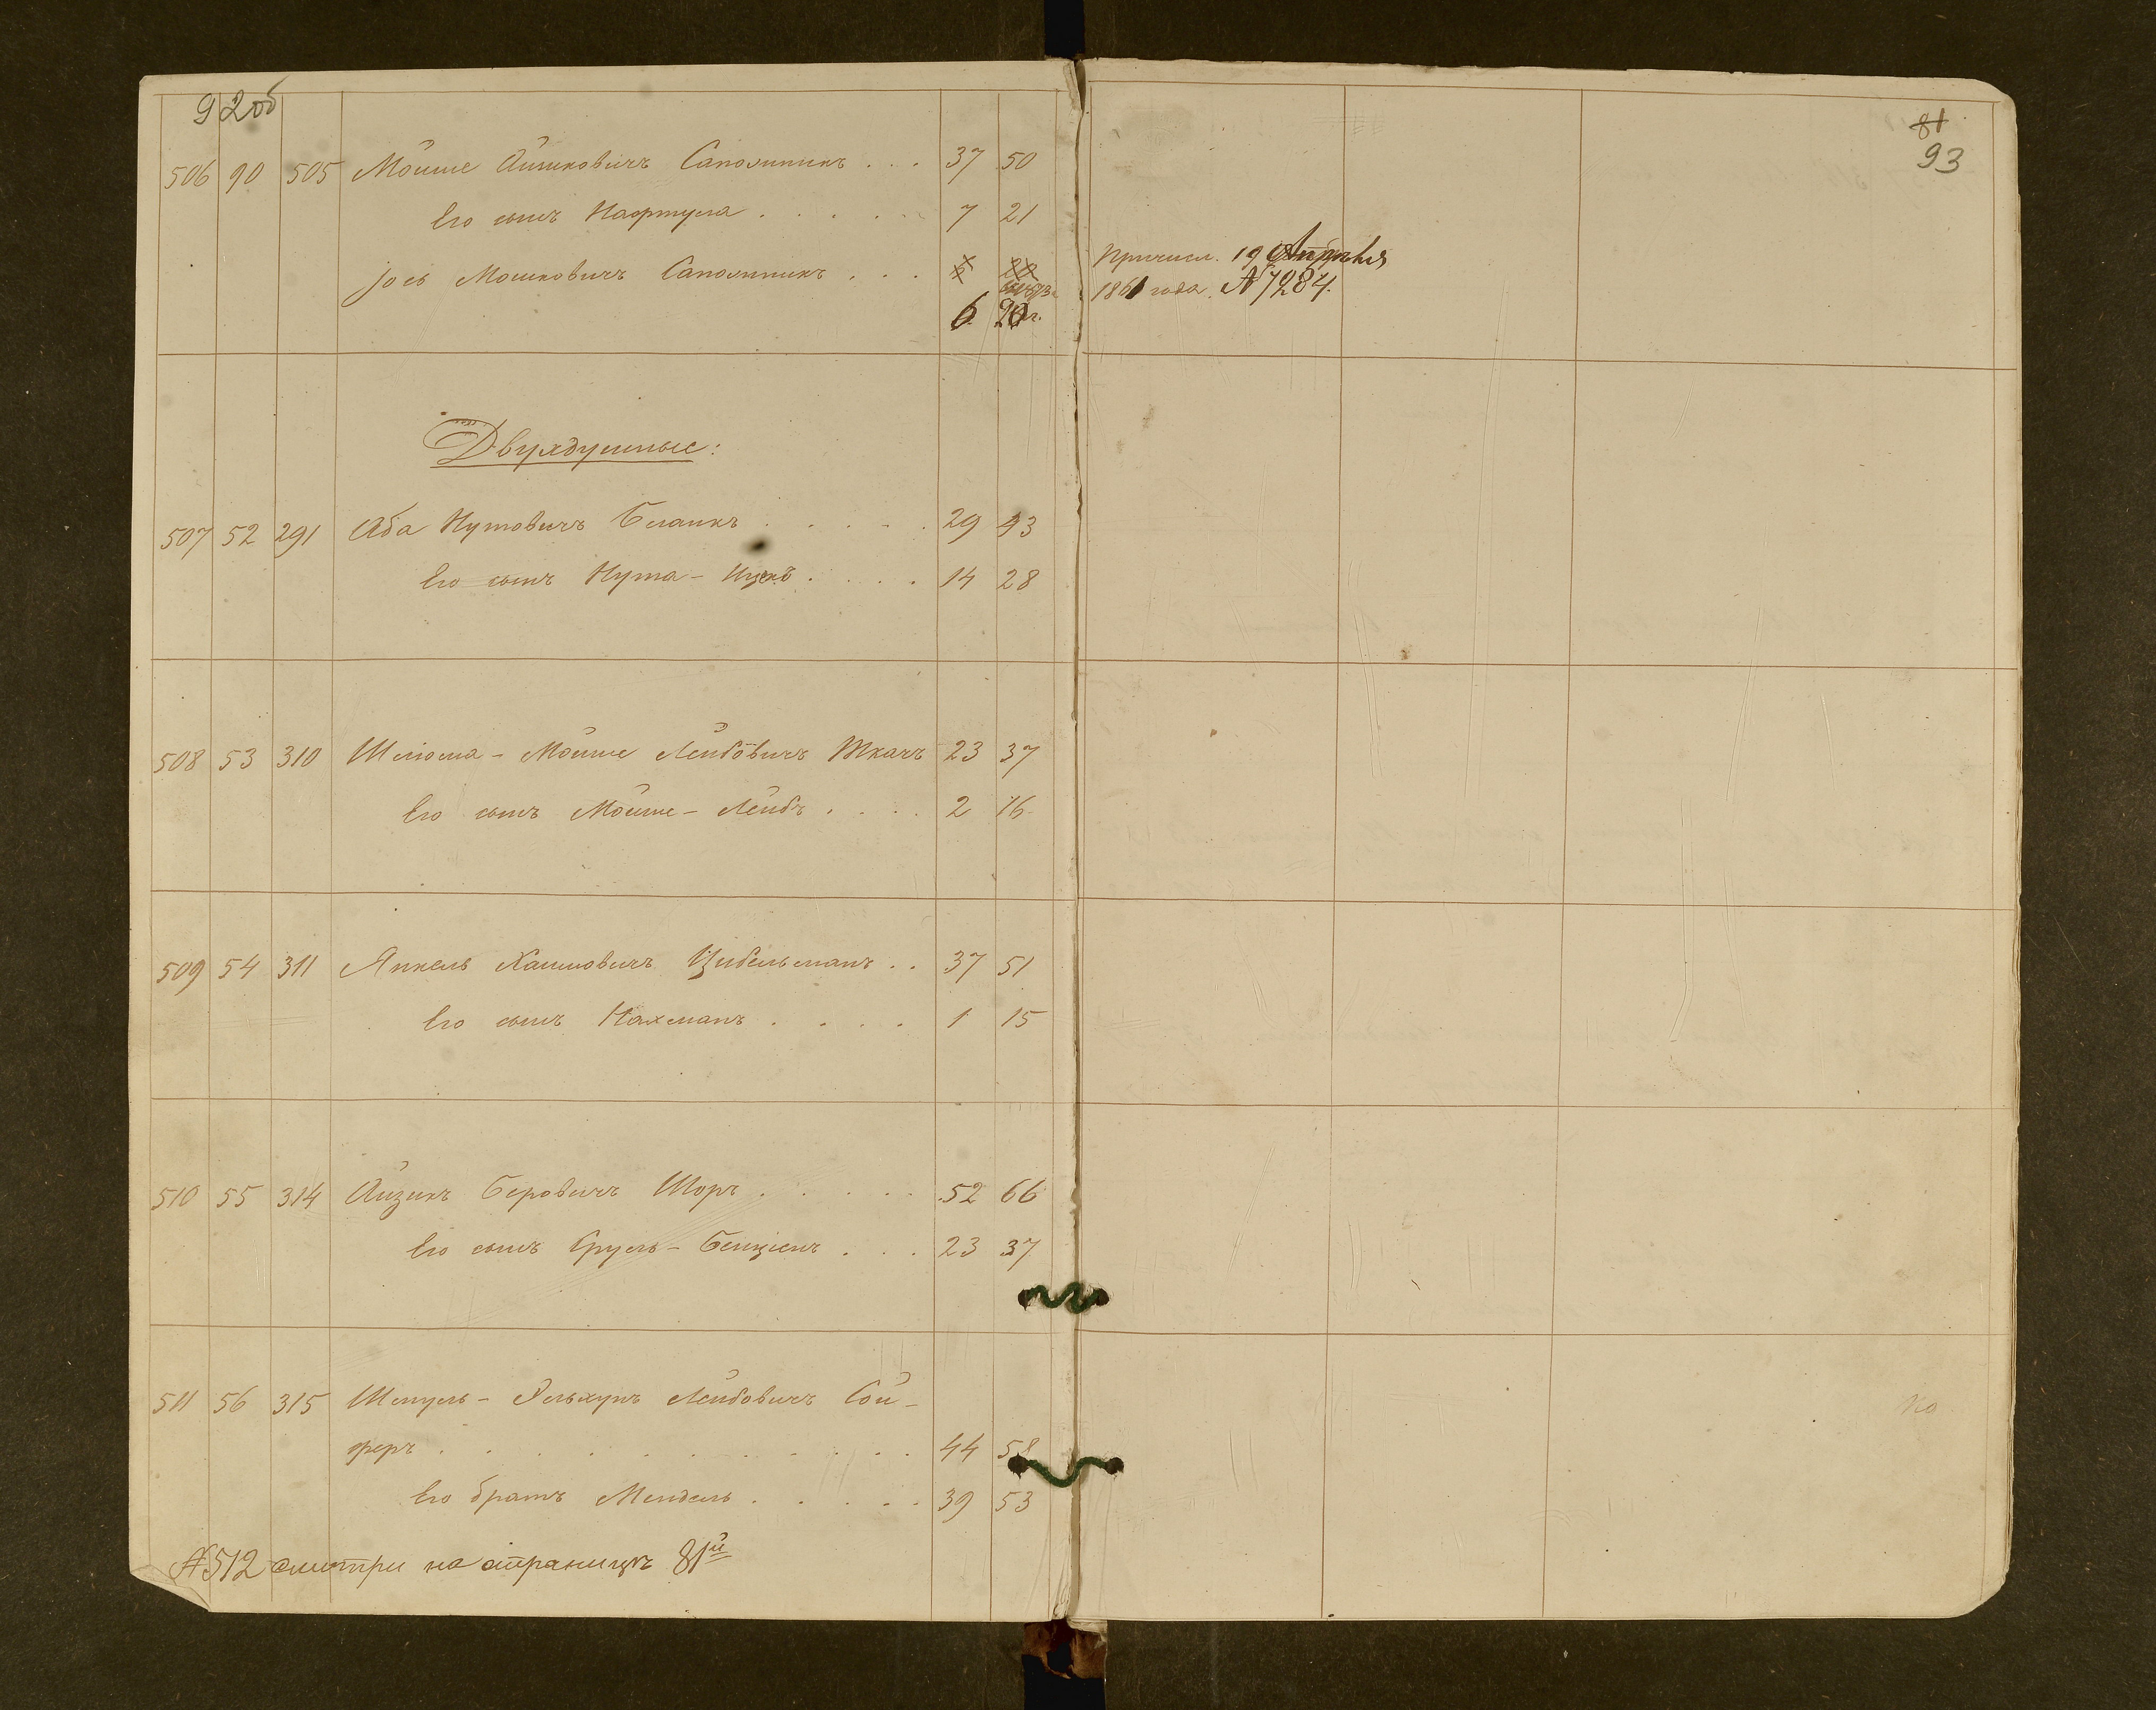 92об
81
93
506 90 505 Мойше Айшковичъ Сапожникъ . . . 37 50
Его сынъ Нафтула . . . . . 7 21
Іось Мошковичъ Сапожникъ . . .
6 20 г.
Причисл. 19 Апрѣля
1861 года. № 7284.
Двухдушные:
507 52 291 Аба Нутовичъ Бланкъ . . . . . 29 43
Его сынъ Нута - Ицекъ . . . . 14 28
508 53 310 Шлиома - Мойше Лейбовичъ Ткачъ 23 37
Его сынъ Мойше - Лейбъ . . . . 2 16
509 54 311 Янкель Хаимовичъ Цибельманъ . . 37 51
Его сынъ Нахманъ . . . . 1 15
510 55 314 Айзикъ Беровичъ Шоръ . . . . . 52 66
Его сынъ Сруль - Бенціенъ . . . 23 37
511 56 315 Шмуль - Эльхунъ Лейбовичъ Сой-
феръ . . . . . . . . . . 44 58
Его братъ Мендель . . . . . 39 53
№ 512 смотри на страницѣ 81й